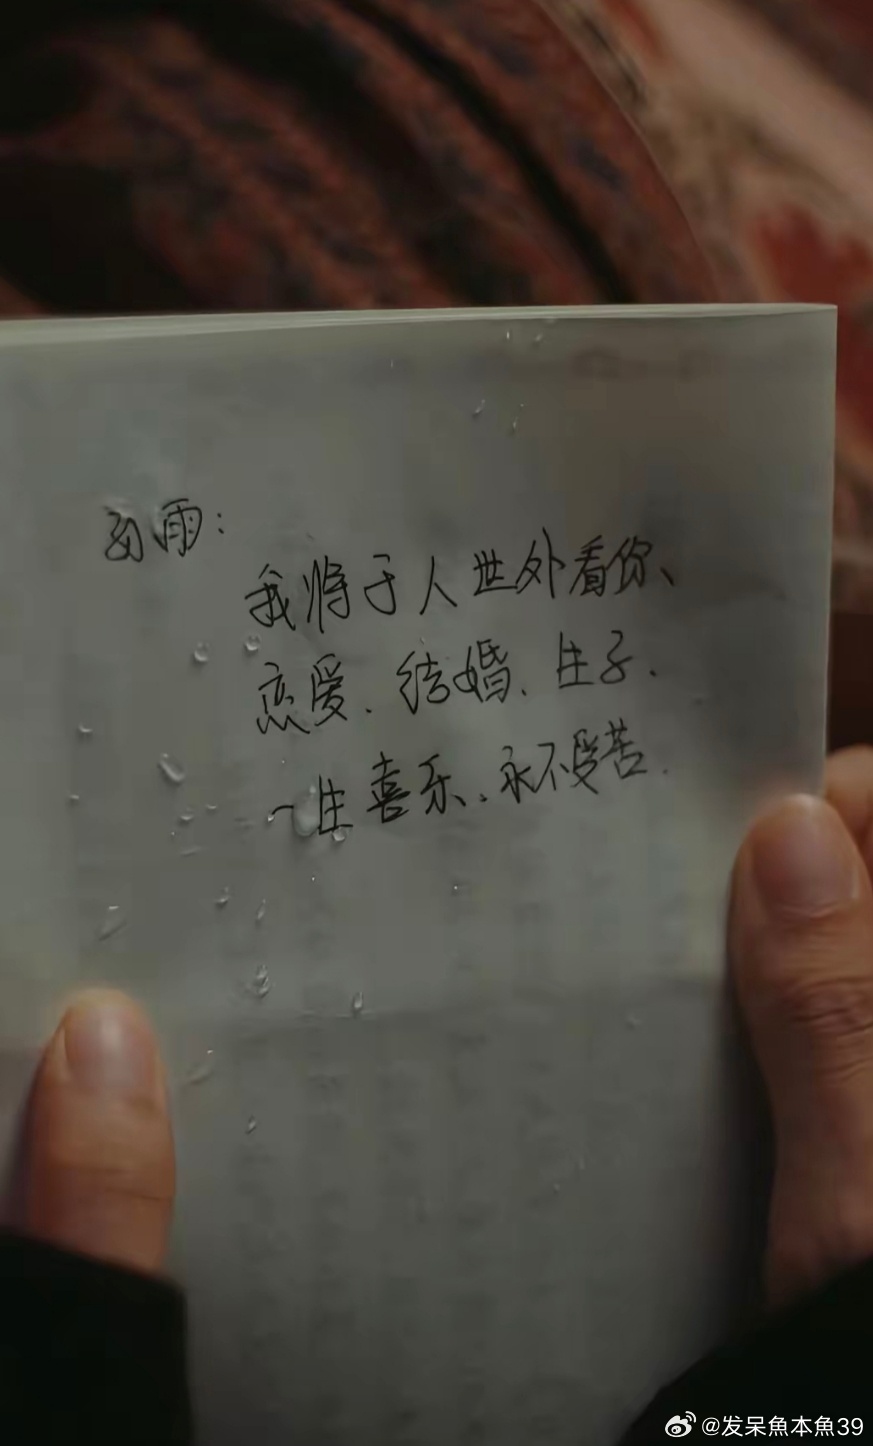 雨:
我将于人世外看你、
恋爱、结婚、生子.
一生喜乐、永不受苦.
@发呆魚本魚39